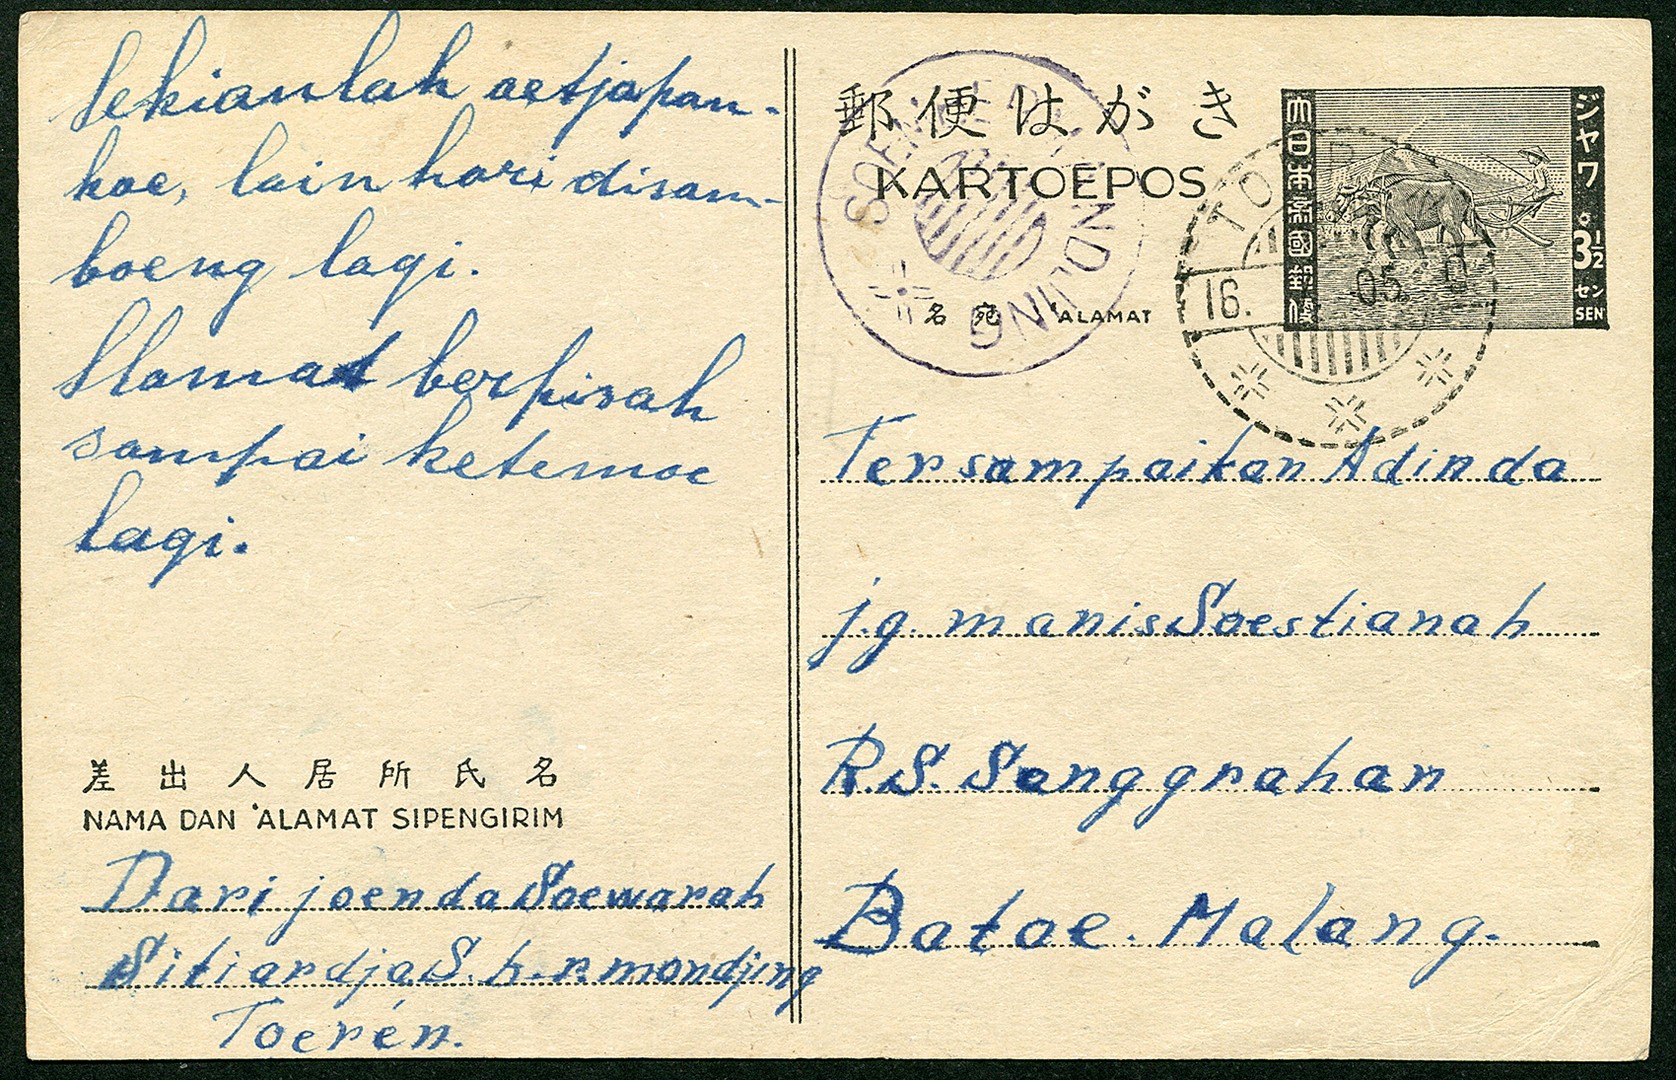 Sekianlah oetjapan-
koe, lain hari disam-
boeng lagi.
Slamat berpisah
sampai ketemoe
lagi.
差出人居所氏名
NAMA DAN 'ALAMAT SIPENGIRIM
Dari joenda Soewarah
Sitiardja S. h. r. mondjing
Toerén.
郵便はがき
KARTOEPOS
名宛 'ALAMAT
SOEN
NDJING
大日本帝國郵便
ジャワ
3½
セン
SEN
16.
05
Tersampaikan Adinda
j.g. manis Soestianah
R.S. Senggrahan
Batoe. Malang.